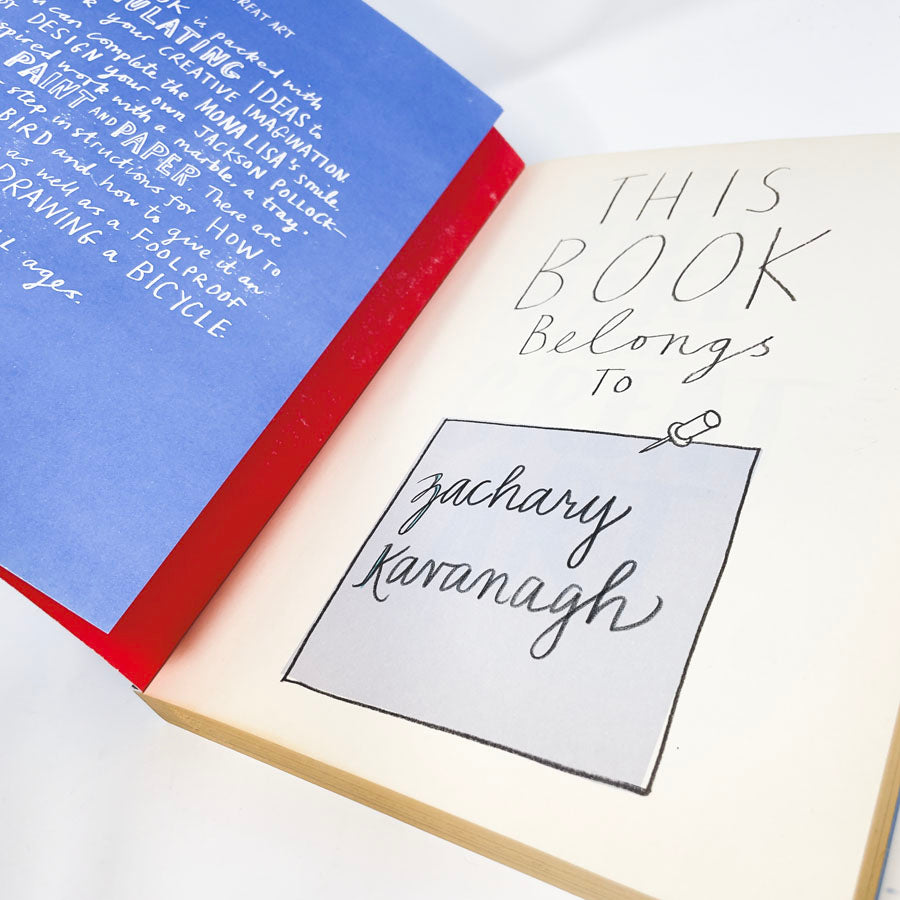 ART
is packed with
IDEAS to
your CREATIVE IMAGINATION.
can complete the MONA LISA's smile
or DESIGN your own JACKSON POLLOCK-
work with a marble, a tray,
PAINT AND PAPER. There are
step instructions for HOW TO
BIRD and how to give it an
as well as a FOOLPROOF
DRAWING a BICYCLE.
ages.
THIS
BOOK
Belongs
To
Zachary
Kavanagh